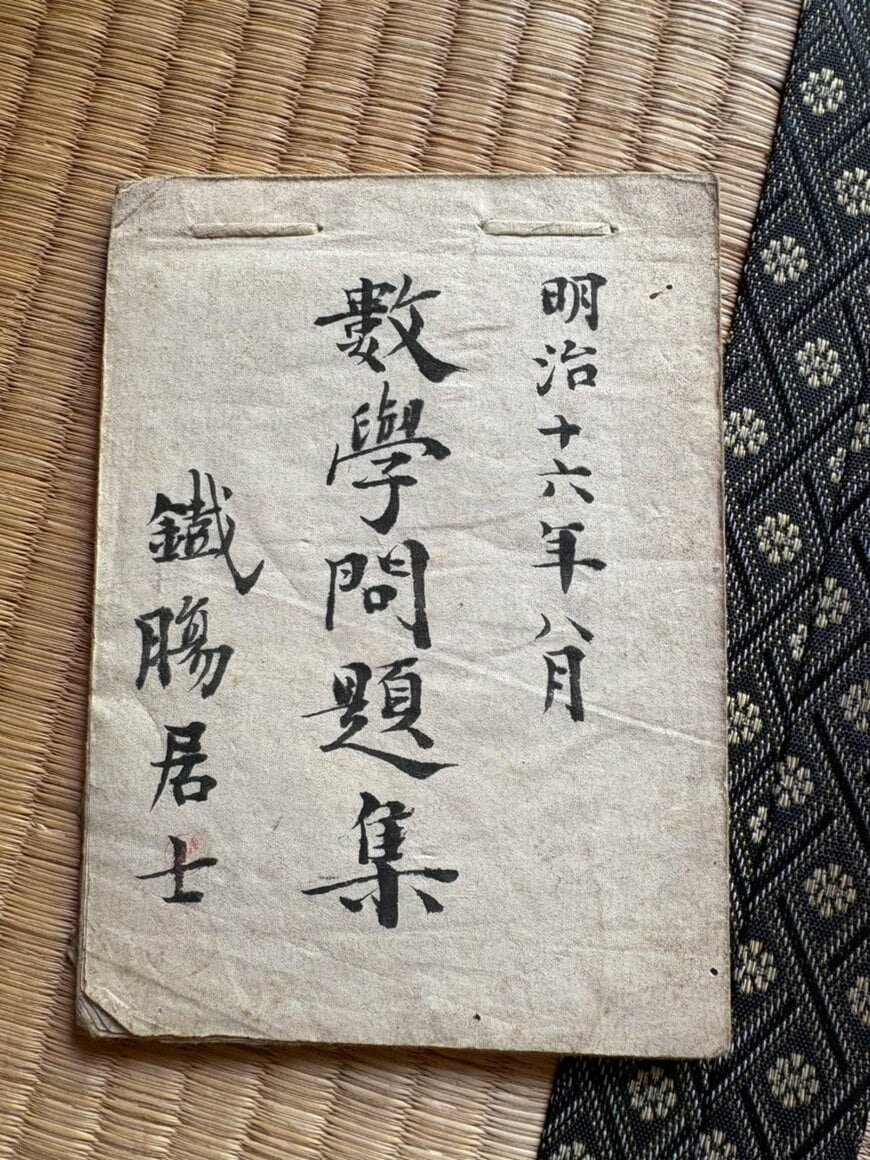 明治十六年八月
數學問題集
鐵腸居士